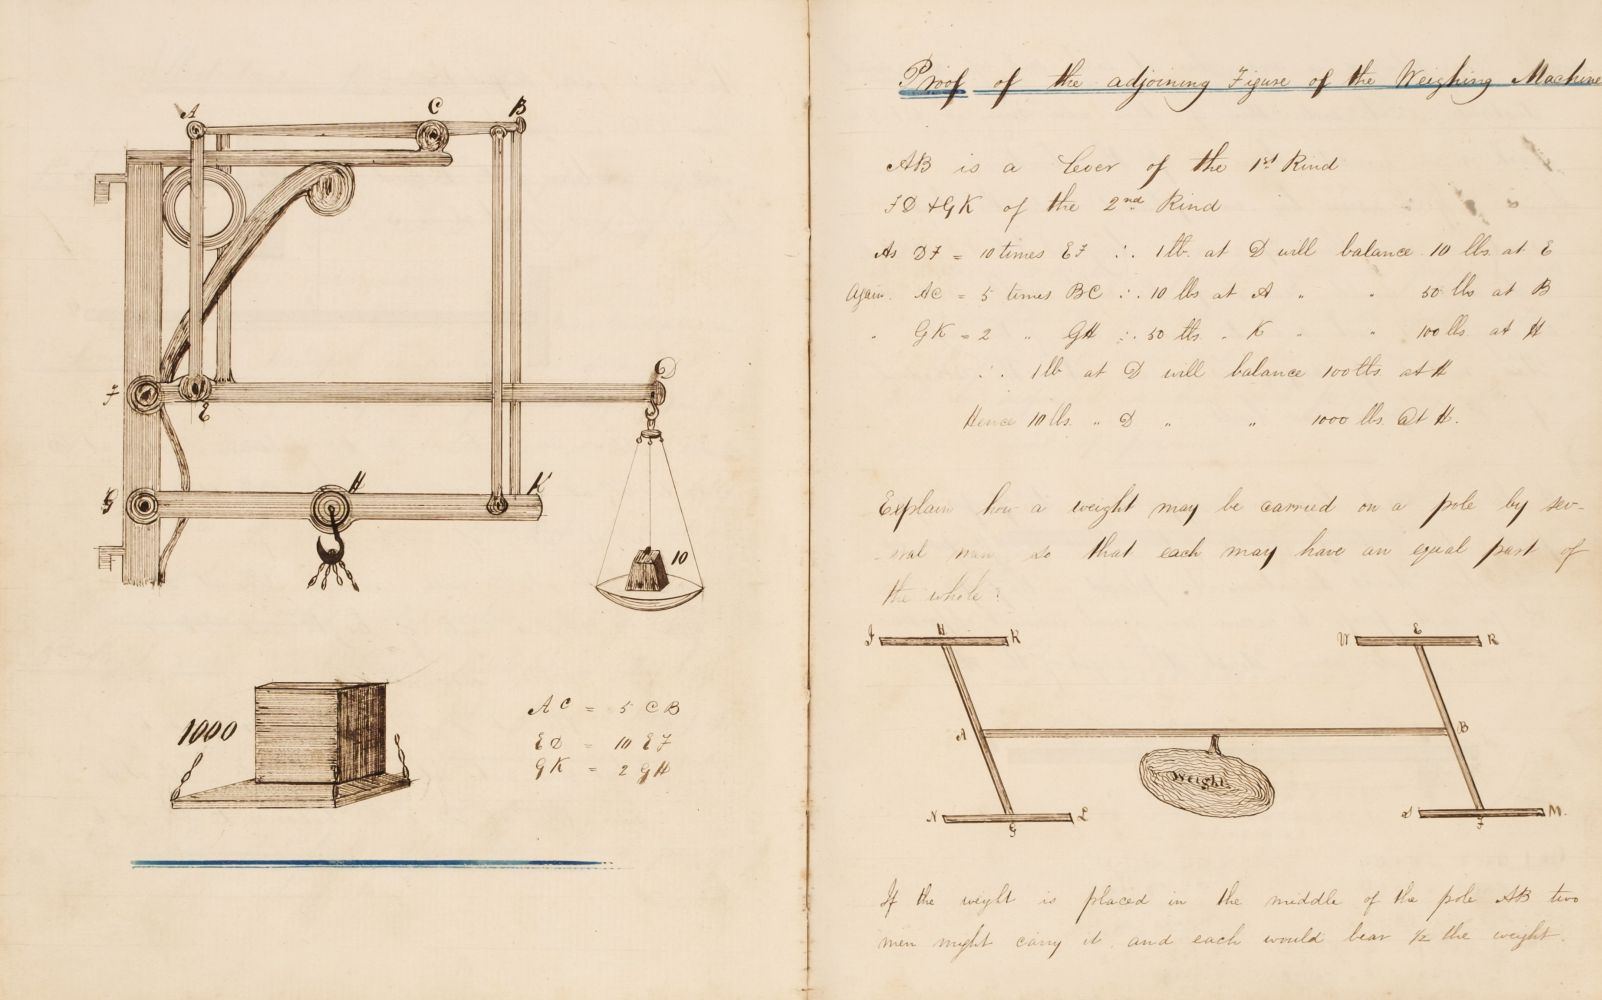 A
C
B
F
E
D
G
H
K
10
1000
AC = 5 CB
ED = 10 EF
GK = 2 GH
Proof of the adjoining Figure of the Weighing Machine
AB is a lever of the 1st Kind
FD & GK of the 2nd Kind
As DF = 10 times EF ∴ 1 lb. at D will balance 10 lbs. at E
Again. AC = 5 times BC ∴ 10 lbs at A " " 50 lbs at B
" GK = 2 " GH ∴ 50 lbs. " K " " 100 lbs. at H
∴ 1 lb at D will balance 100 lbs. at H
Hence 10 lbs. " D " " 1000 lbs. At H.
Explain how a weight may be carried on a pole by sev-
-ral men so that each may have an equal part of
the whole?
H E
K W R
A B
Weight
N L M.
G F
If the weight is placed in the middle of the pole AB two
men might carry it, and each would bear 1/2 the weight.